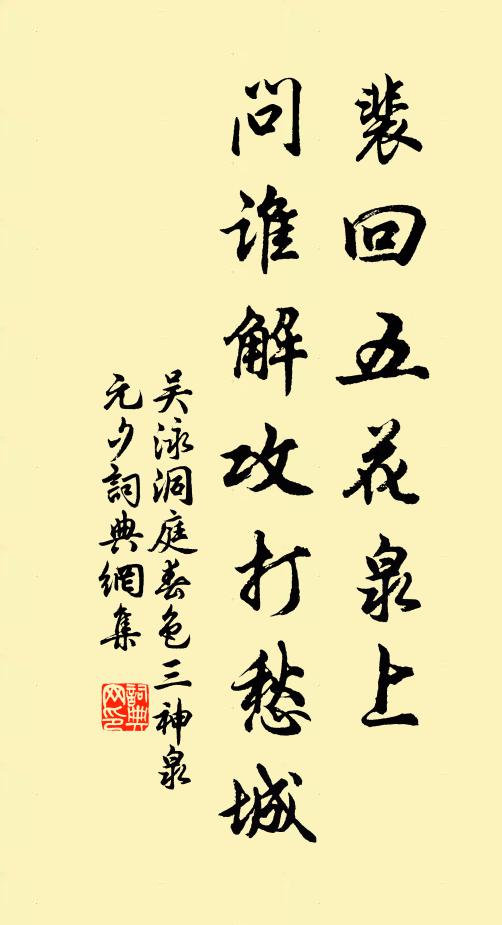 裴回五花泉上
问谁解攻打愁城
吴泳洞庭春色三神泉
元夕詞典網集
詞典网印